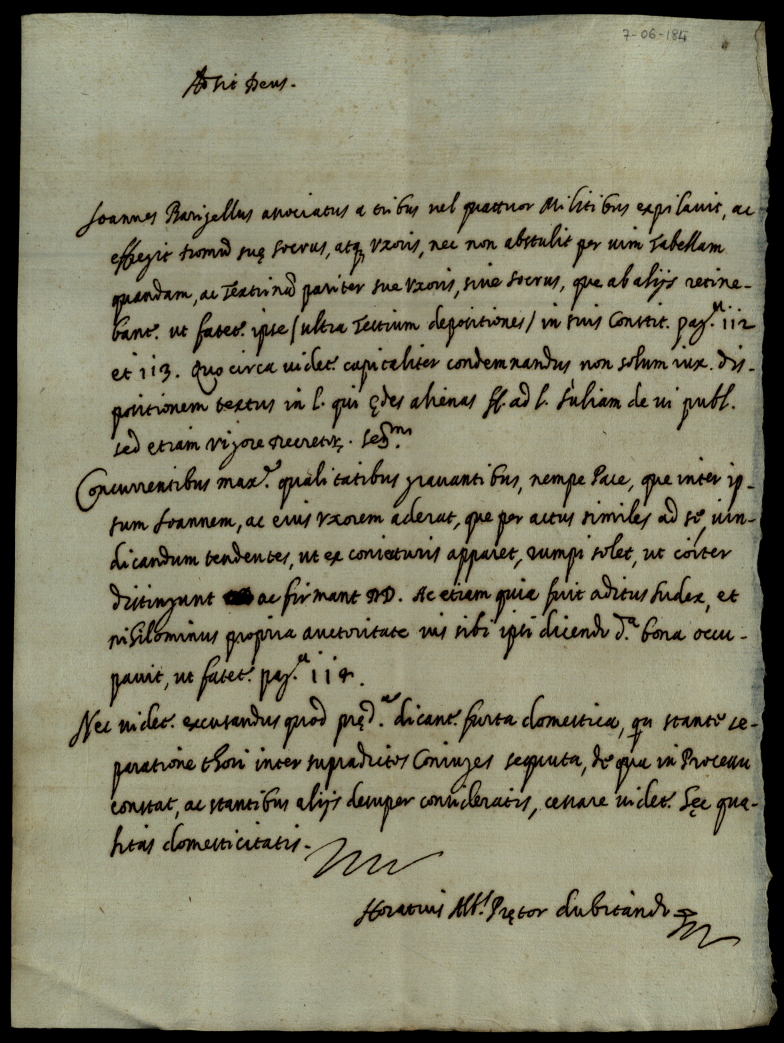 7-06-184
Adsit Deus.
Joannes Barigellus associatus a tribus vel quattuor Militibus expilavit, ac
effregit domum suę socrus, atq; uxoris, nec non abstulit per vim Tabellam
quandam, ac pariter sue uxoris, sive socrus, que ab alijs retine-
bant.r ut fatet.r ipse /ultra Testium depositiones/ in suis Constit. pag.a 112
et 113. Quo circa videt.r capitaliter condemnandus non solum iux. dis-
positionem textus in l. qui ędes alienas ff. ad l. Juliam de vi publ.
sed etiam vigore
Concurrentibus max.e qualitatibus gravantibus, nempe Pace, que inter ip-
sum Joannem, ac eius uxorem aderat, que per actus similes ad se vin-
dicandum tendentes, ut ex coniecturis apparet, rumpi solet, ut cōiter
distingunt ac firmant DD. Ac etiam quia fuit aditus Judex, et
nihilominus propria auctoritate ius sibi ipsi dicendo d.a bona occu-
pavit, ut fatet.r pag.a 114.
Nec videt.r excusandus quod pręd.a dicant.r furta domestica, qa stante se-
paratione thori inter supradictos Coniuges sequuta, de qua in Processu
constat, ac stantibus alijs desuper consideratis, cessare videt.r hęc qua-
litas domesticitatis.
Horatius Prętor dubitando